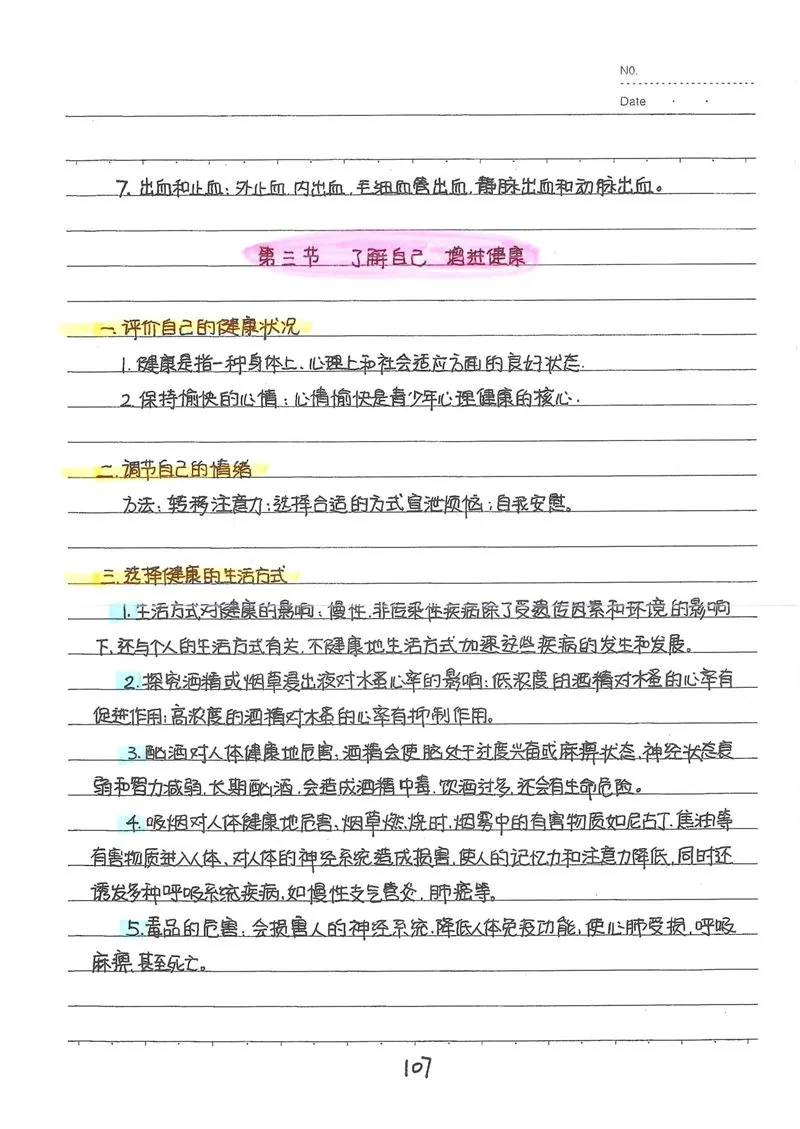 NO.
Date
7. 出血和止血:外止血,内出血,毛细血管出血,静脉出血和动脉出血。
第三节 了解自己 增进健康
一.评价自己的健康状况
1.健康是指一种身体上、心理上和社会适应方面的良好状态.
2.保持愉快的心情:心情愉快是青少年心理健康的核心.
二.调节自己的情绪
方法:转移注意力;选择合适的方式宣泄烦恼;自我安慰。
三.选择健康的生活方式
1.生活方式对健康的影响:慢性,非传染性疾病除了受遗传因素和环境的影响
下,还与个人的生活方式有关,不健康地生活方式加速这些疾病的发生和发展。
2.探究酒精或烟草浸出液对水蚤心率的影响:低浓度的酒精对水蚤的心率有
促进作用;高浓度的酒精对水蚤的心率有抑制作用。
3.酗酒对人体健康地危害:酒精会使脑处于过度兴奋或麻痹状态,神经状态衰
弱和智力减弱,长期酗酒,会造成酒精中毒,饮酒过多,还会有生命危险。
4.吸烟对人体健康地危害:烟草燃烧时,烟雾中的有害物质如尼古丁.焦油等
有害物质进入人体、对人体的神经系统造成损害,使人的记忆力和注意力降低,同时还
诱发多种呼吸系统疾病,如慢性支气管炎,肺癌等。
5.毒品的危害:会损害人的神经系统,降低人体免疫功能,使心肺受损,呼吸
麻痹,甚至死亡。
107